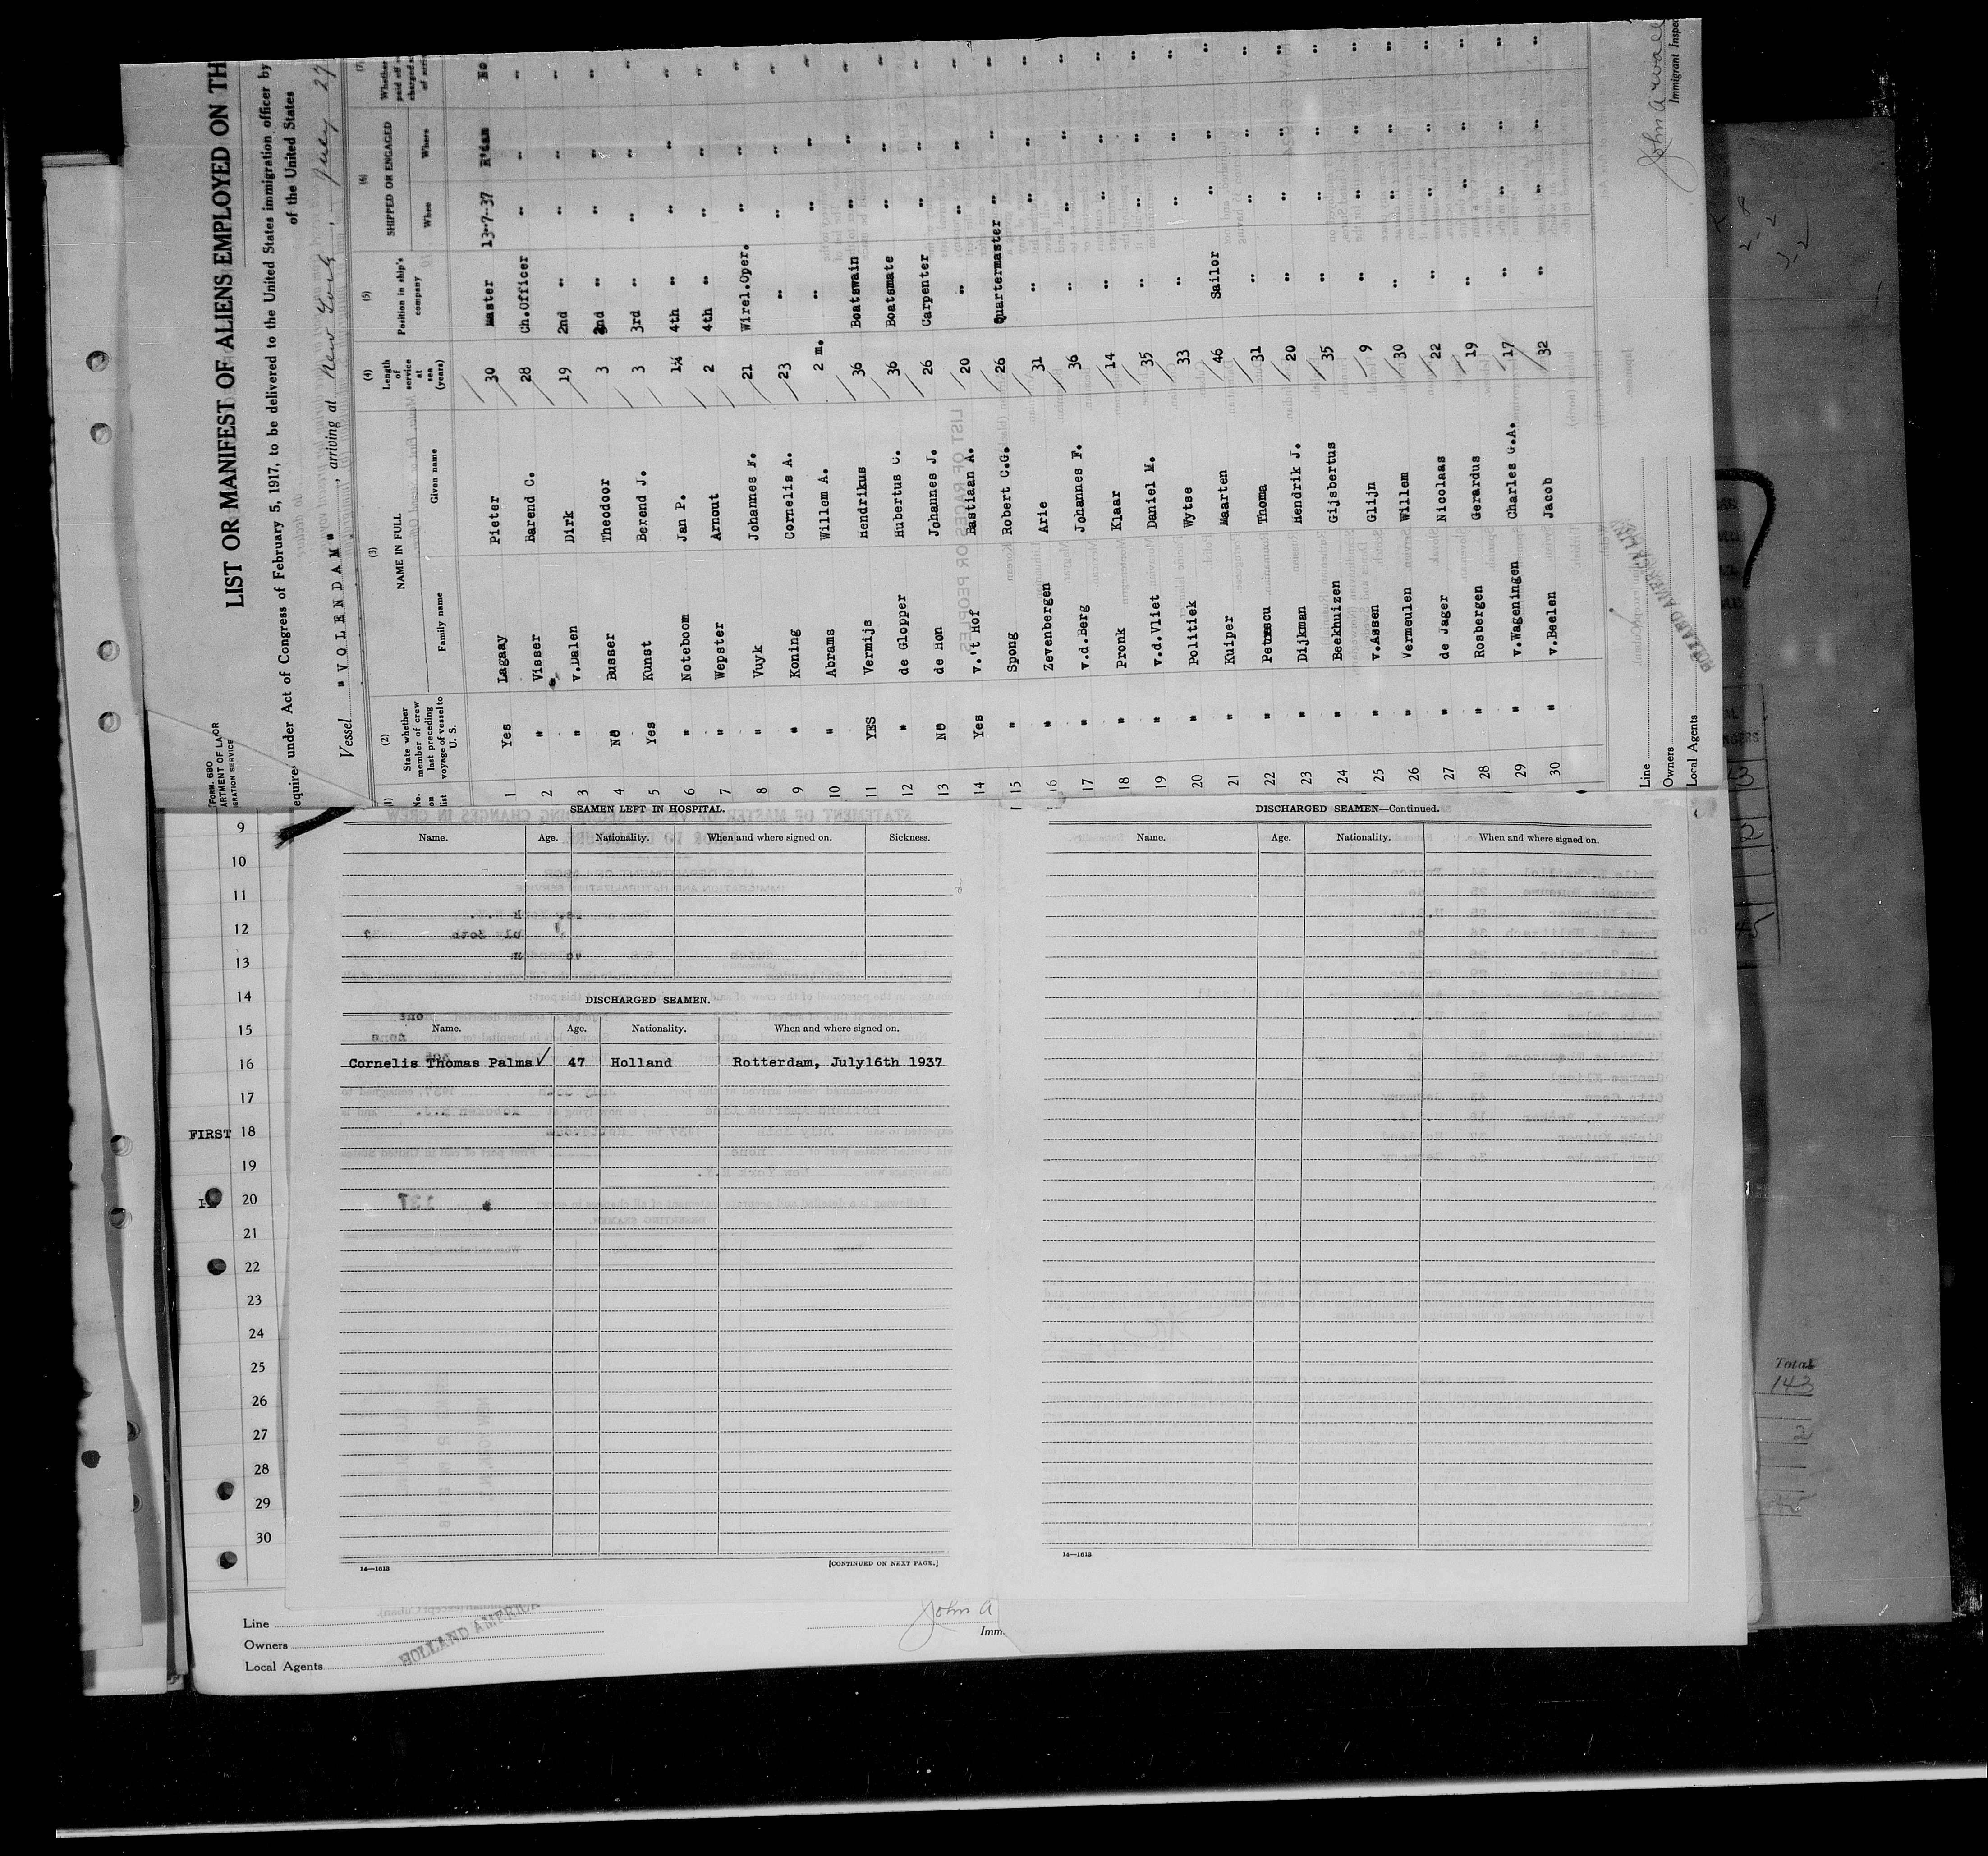 FORM 680
LIST OR MANIFEST OF ALIENS EMPLOYED ON TH
under Act of Congress of February 5, 1917, to be delivered to the United States immigration officer by
of the United States
Vessel "VOLENDAM", arriving at New York, July 27
(1) (2) (3) (4) (5) (6) (7)
No. on list State whether member of crew last preceding voyage of vessel to U. S. NAME IN FULL Family name Given name Length of service at sea (years) Position in ship's company SHIPPED OR ENGAGED When Where Whether
1 Yes Lagaay Pieter 30 Master 13-7-37 R'dam No
2 " Visser Barend C. 28 Ch.Officer " " "
3 " v.Dalen Dirk 19 2nd " " " "
4 No Busser Theodoor 3 2nd " " " "
5 Yes Kunst Berend J. 3 3rd " " " "
6 " Noteboom Jan P. 1¼ 4th " " " "
7 " Wepster Arnout 2 4th " " " "
8 " Vuyk Johannes F. 21 Wirel.Oper. " " "
9 " Koning Cornelis A. 23 " " " "
10 " Abrams Willem A. 2 m. " " " "
11 YES Vermijs Hendrikus 36 Boatswain " " "
12 " de Glopper Hubertus C. 36 Boatsmate " " "
13 No de Hon Johannes J. 26 Carpenter " " "
14 Yes v.'t Hof Bastiaan A. 20 " " " "
15 " Spong Robert C.G. 26 Quartermaster " " "
16 " Zevenbergen Arie 31 " " " "
17 " v.d.Berg Johannes F. 36 " " " "
18 " Pronk Klaar 14 " " " "
19 " v.d.Vliet Daniel M. 35 " " " "
20 " Politiek Wytse 33 " " " "
21 " Kuiper Maarten 46 Sailor " " "
22 " Petrescu Thoma 31 " " " "
23 " Dijkman Hendrik J. 20 " " " "
24 " Beekhuizen Gijsbertus 35 " " " "
25 " v.Assen Glijn 9 " " " "
26 " Vermeulen Willem 30 " " " "
27 " de Jager Nicolaas 22 " " " "
28 " Rosbergen Gerardus 19 " " " "
29 " v.Wageningen Charles G.A. 17 " " " "
30 " v.Beelen Jacob 32 " " " "
Line
Owners
Local Agents
HOLLAND AMERICA LINE
Immigrant Inspe
9
10
11
12
13
14
15
16
17
FIRST 18
19
20
21
22
23
24
25
26
27
28
29
30
SEAMEN LEFT IN HOSPITAL.
Name. Age. Nationality. When and where signed on. Sickness.
DISCHARGED SEAMEN.
Name. Age. Nationality. When and where signed on.
Cornelis Thomas Palms ✓ 47 Holland Rotterdam, July16th 1937
14—1613
[CONTINUED ON NEXT PAGE.]
DISCHARGED SEAMEN—Continued.
Name. Age. Nationality. When and where signed on.
14—1613
Line
Owners
Local Agents
HOLLAND AMERICA
John A
Imm.
Total
143